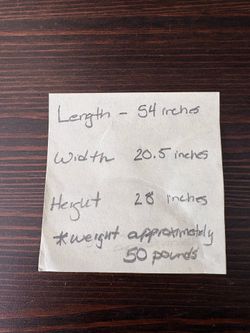 Length - 54 inches
Width 20.5 inches
Height 28 inches
*weight approximately
50 pounds